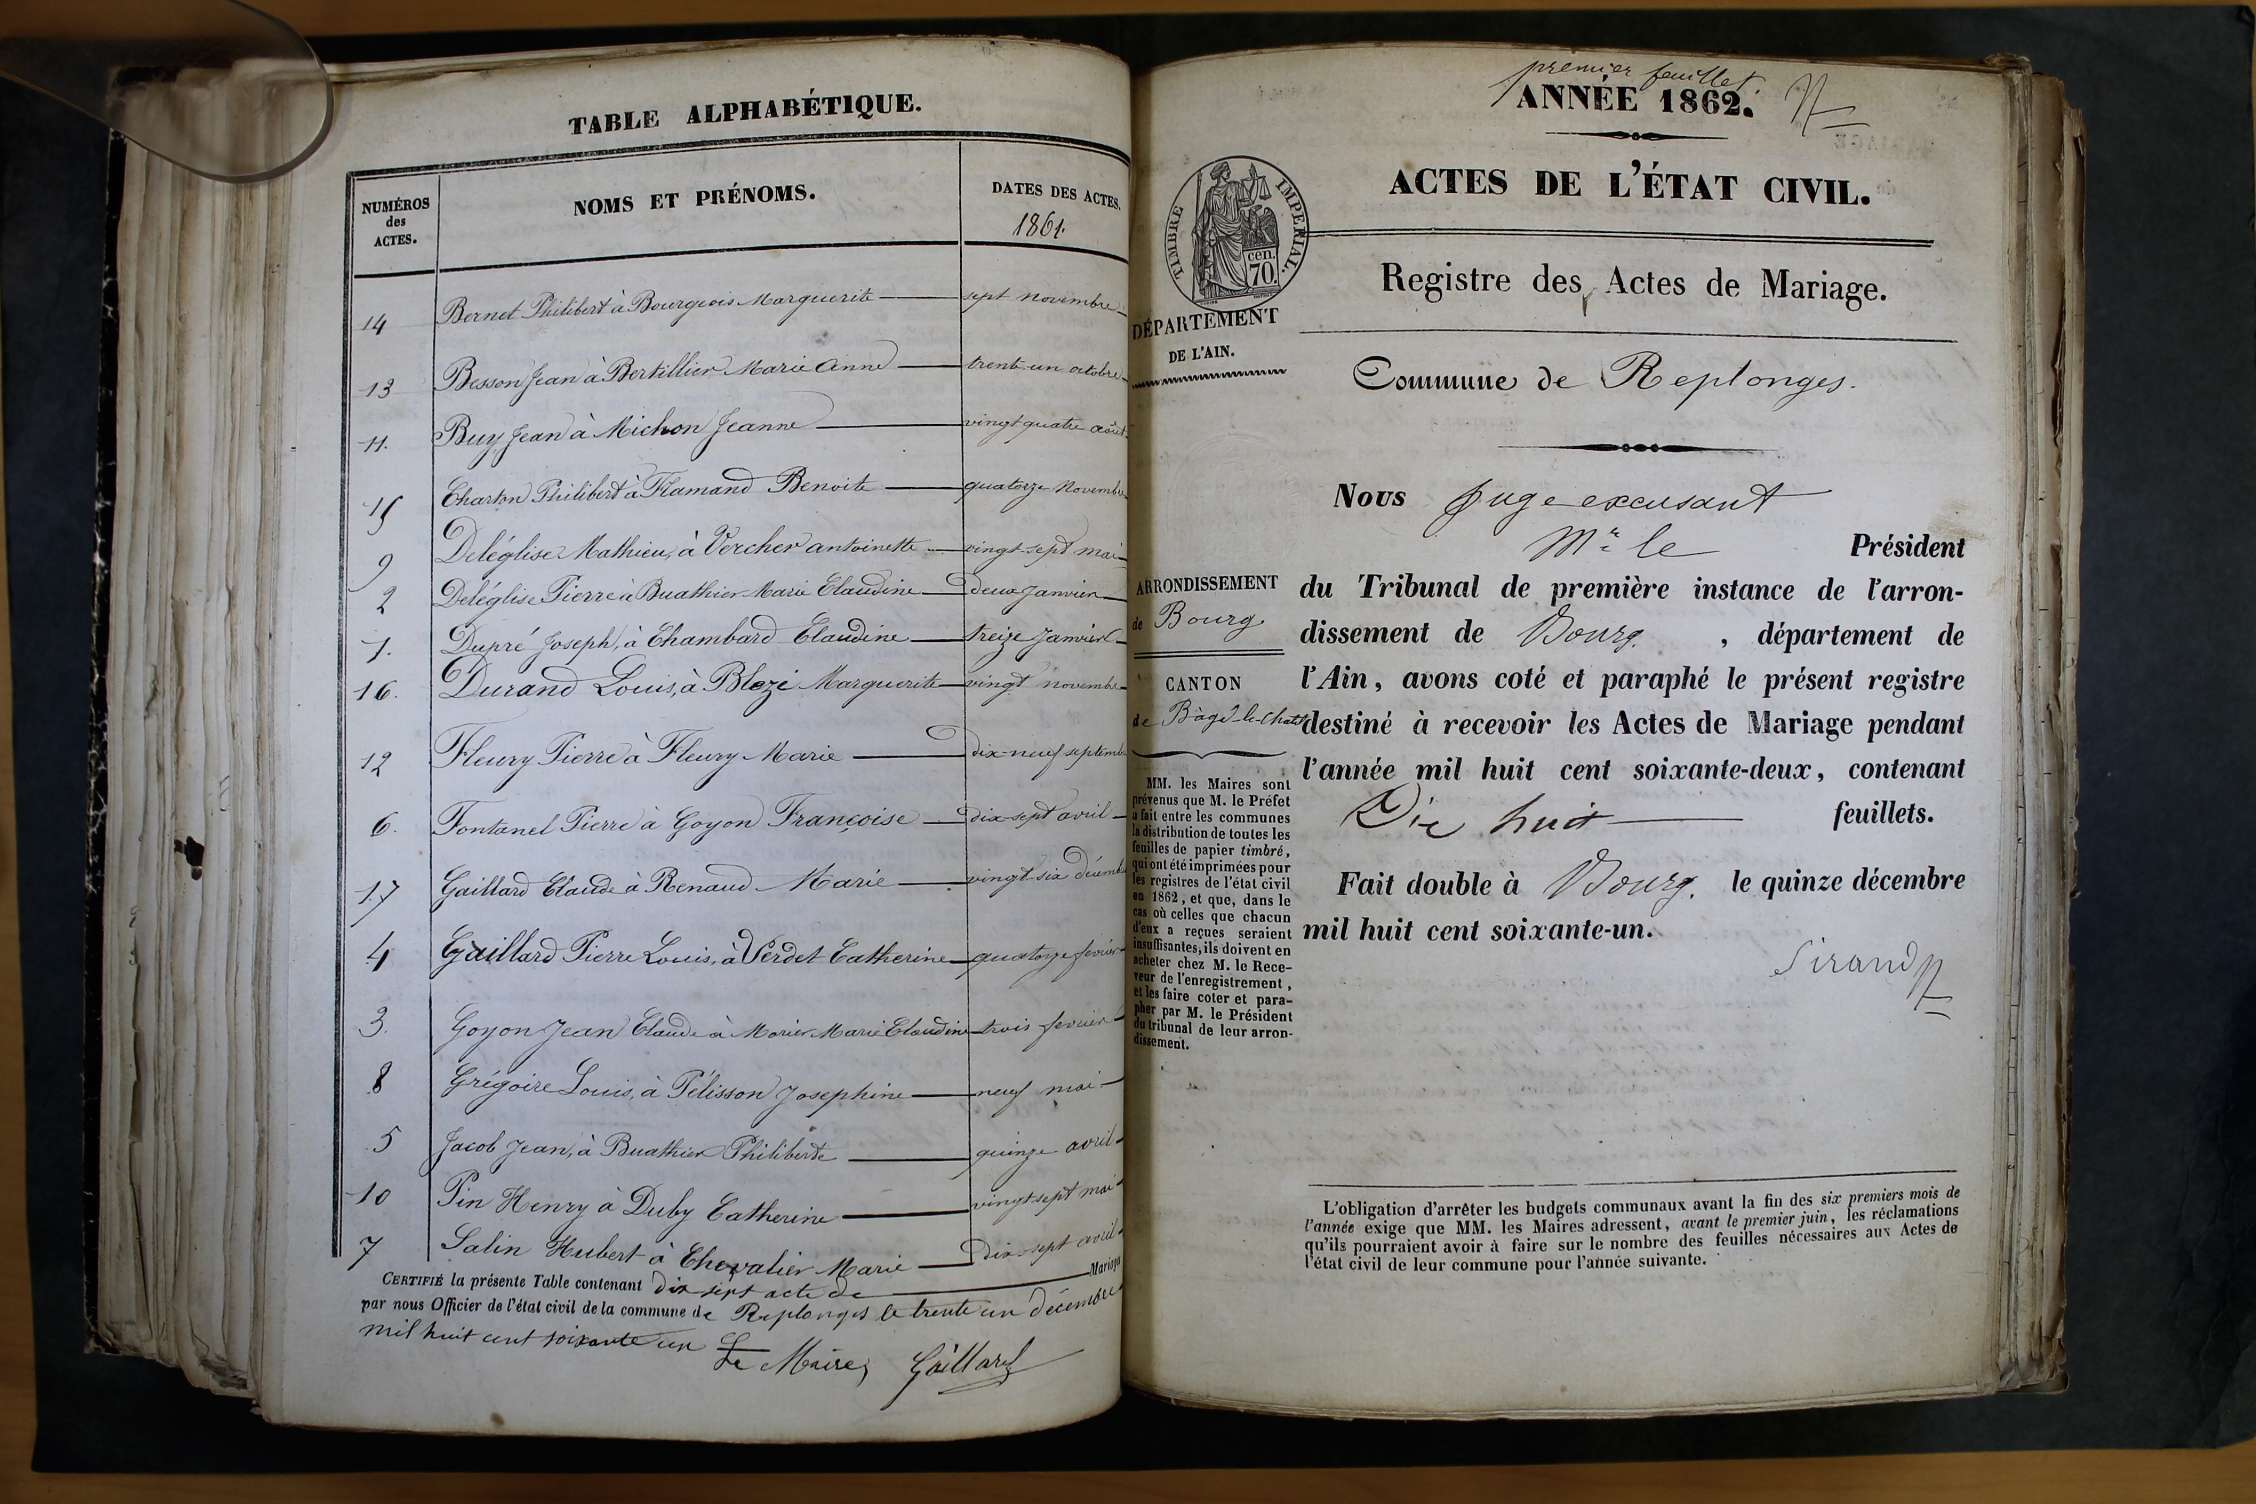 TABLE ALPHABÉTIQUE.
NUMÉROS des ACTES.
NOMS ET PRÉNOMS.
DATES DES ACTES.
1861.
14 Bernet Philibert à Bourgeois Marguerite sept novembre
13 Besson Jean à Bertillier Marie Anne trente un octobre
11. Buy Jean à Michon Jeanne vingt quatre août
15 Charton Philibert à Flamand Benoite quatorze Novembre
9 Deléglise Mathieu, à Vercher antoinette vingt sept mai
2 Deléglise Pierre à Buathier Marie Claudine deux Janvier
1. Dupré Joseph, à Chambard Claudine treize Janvier
16. Durand Louis, à Blezé Marguerite vingt novembre
12 Fleury Pierre à Fleury Marie dix-neuf septemb
6. Fontanel Pierre à Goyon Françoise dix-sept avril
17 Gaillard Claude à Renaud Marie vingt-six décemb
4 Gaillard Pierre Louis, à Verdet Catherine quatorze fevrier
3. Goyon Jean Claude à Morier Marie Claudine trois fevrier
8 Grégoire Louis, à Pélisson Josephine neuf mai
5 Jacob Jean, à Buathier Philiberte quinze avril
10 Pin Henry à Duby Catherine vingt sept mai
7 Salin Hubert à Chevalier Marie dix sept avril
CERTIFIÉ la présente Table contenant dix-sept acte de Mariage
par nous Officier de l'état civil de la commune de Replonges le trente un décembre
mil huit cent soixante un
Le Maire, Gaillard
premier feuillet.
ANNÉE 1862.
ACTES DE L'ÉTAT CIVIL.
TIMBRE IMPERIAL.
cen.
70.
Registre des Actes de Mariage.
DÉPARTEMENT
DE L'AIN.
Commune de Replonges.
Nous Juge excusant
Mr le Président
du Tribunal de première instance de l'arron-
dissement de Bourg. , département de
l'Ain, avons coté et paraphé le présent registre
destiné à recevoir les Actes de Mariage pendant
l'année mil huit cent soixante-deux, contenant
Dix huit feuillets.
Fait double à Bourg. le quinze décembre
mil huit cent soixante-un.
Sirand
ARRONDISSEMENT
de Bourg
CANTON
de Bâgé-le-Chatel
MM. les Maires sont
prévenus que M. le Préfet
a fait entre les communes
la distribution de toutes les
feuilles de papier timbré,
qui ont été imprimées pour
les registres de l'état civil
en 1862, et que, dans le
cas où celles que chacun
d'eux a reçues seraient
insuffisantes, ils doivent en
acheter chez M. le Rece-
veur de l'enregistrement,
et les faire coter et para-
pher par M. le Président
du tribunal de leur arron-
dissement.
L'obligation d'arrêter les budgets communaux avant la fin des six premiers mois de
l'année exige que MM. les Maires adressent, avant le premier juin, les réclamations
qu'ils pourraient avoir à faire sur le nombre des feuilles nécessaires aux Actes de
l'état civil de leur commune pour l'année suivante.